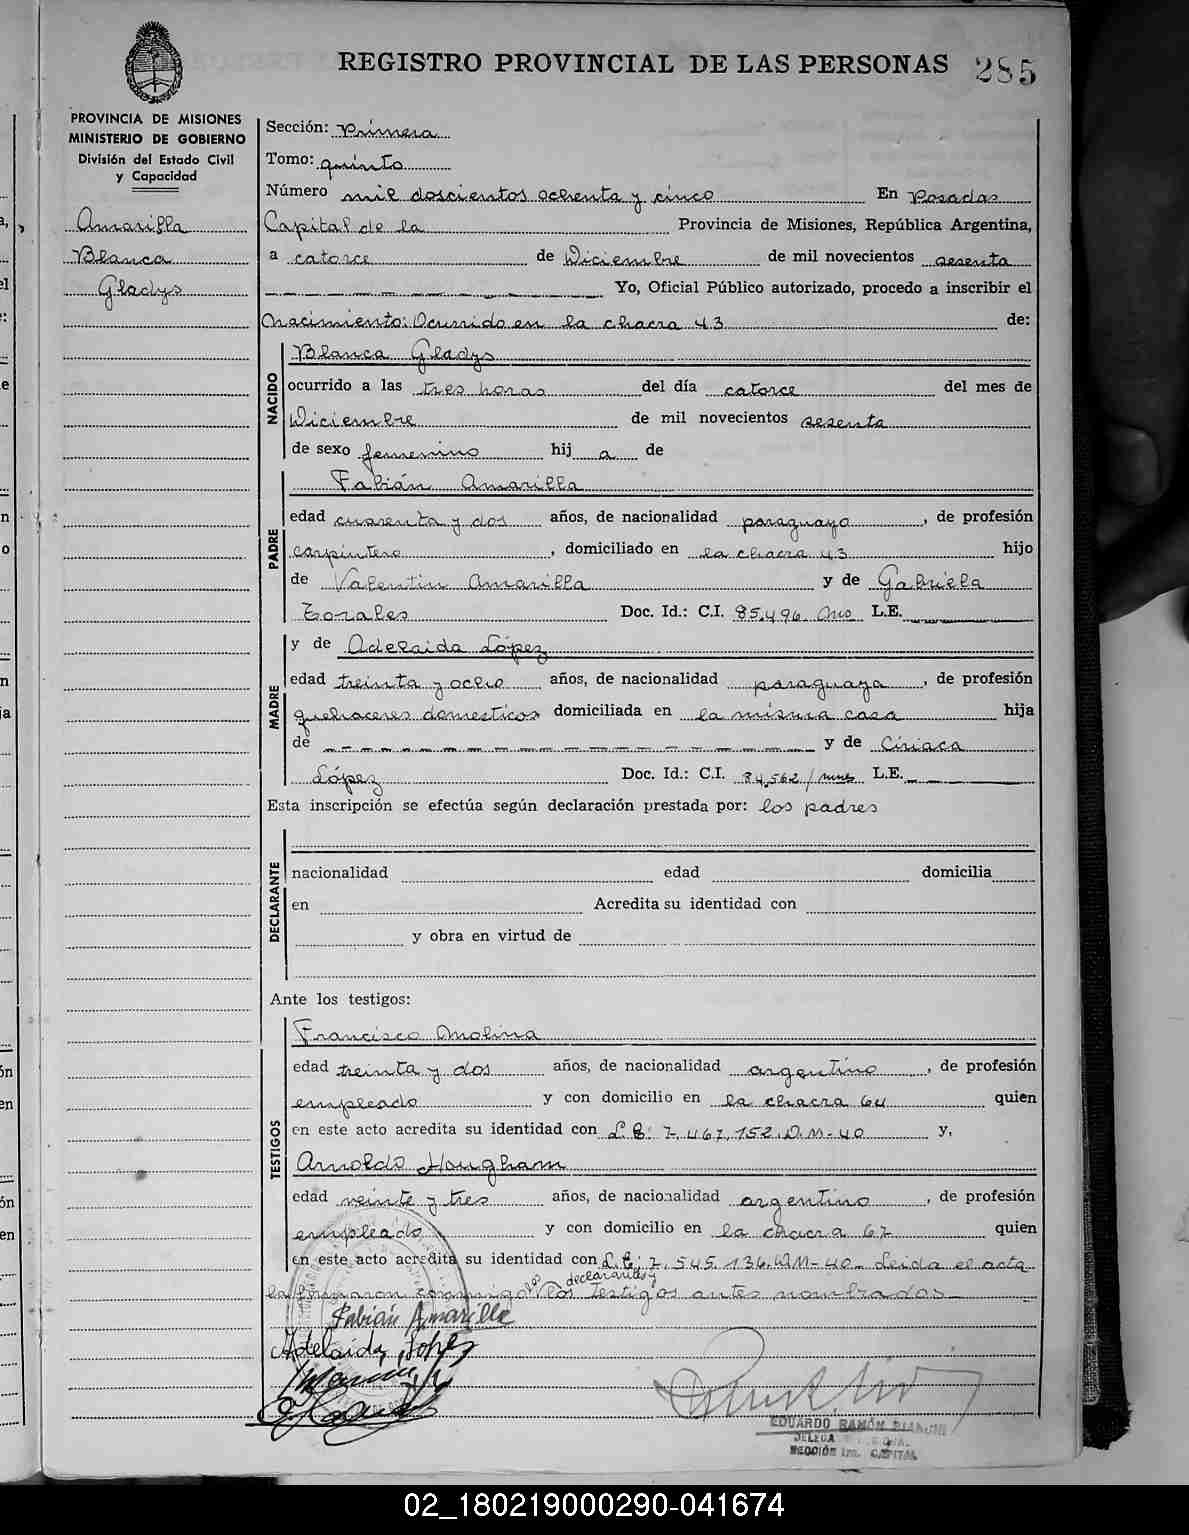 REGISTRO PROVINCIAL DE LAS PERSONAS 285
PROVINCIA DE MISIONES
MINISTERIO DE GOBIERNO
División del Estado Civil
y Capacidad
Amarilla
Blanca
Gladys
Sección: Primera
Tomo: quinto
Número mil doscientos ochenta y cinco En Posadas
Capital de la Provincia de Misiones, República Argentina,
a catorce de Diciembre de mil novecientos sesenta
Yo, Oficial Público autorizado, procedo a inscribir el
Nacimiento: Ocurrido en la chacra 43 de:
NACIDO
Blanca Gladys
ocurrido a las tres horas del día catorce del mes de
Diciembre de mil novecientos sesenta
de sexo femenino hij a de
PADRE
Fabián Amarilla
edad cuarenta y dos años, de nacionalidad paraguayo, de profesión
carpintero, domiciliado en la chacra 43 hijo
de Valentin Amarilla y de Gabriela
Torales Doc. Id.: C.I. 85.496. Mns L.E.
MADRE
y de Adelaida López
edad treinta y ocho años, de nacionalidad paraguaya, de profesión
quehaceres domesticos domiciliada en la misma casa hija
de y de Ciriaca
López Doc. Id.: C.I. 84.562 / L.E.
Esta inscripción se efectúa según declaración prestada por: los padres
DECLARANTE
nacionalidad edad domicilia
en Acredita su identidad con
y obra en virtud de
Ante los testigos:
TESTIGOS
Francisco Molina
edad treinta y dos años, de nacionalidad argentino, de profesión
empleado y con domicilio en la chacra 64 quien
en este acto acredita su identidad con L.E. 7.467.152.D.M-40 y,
Arnoldo Hougham
edad veinte y tres años, de nacionalidad argentino, de profesión
empleado y con domicilio en la chacra 67 quien
en este acto acredita su identidad con L.E. 7.545.136.DM-40_ Leida el acta
la firmaron conmigo los declarantes y los testigos antes nombrados_
Fabián Amarilla
Adelaida Lopez
EDUARDO RAMÓN
SECCIÓN 1ra. CAPITAL
02_180219000290-041674